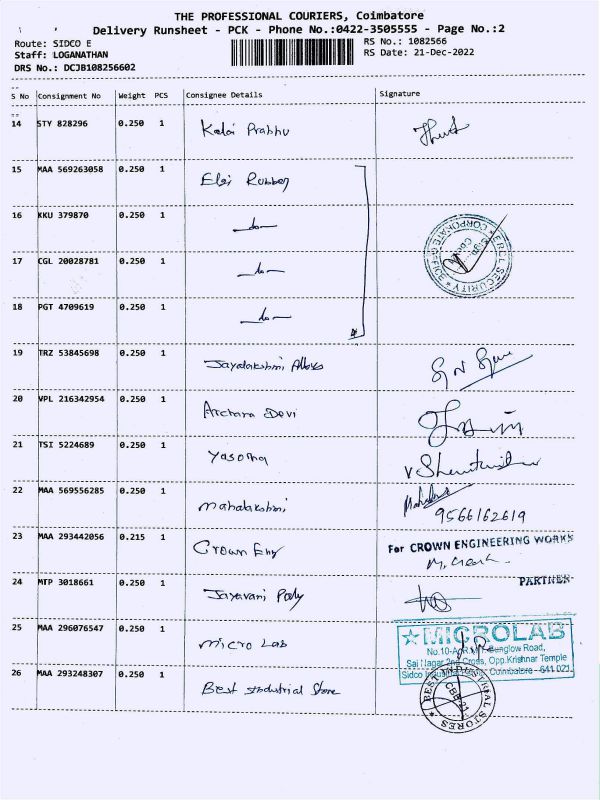 THE PROFESSIONAL COURIERS, Coimbatore
Delivery Runsheet - PCK - Phone No.:0422-3505555 - Page No.:2
Route: SIDCO E
RS No.: 1082566
Staff: LOGANATHAN
RS Date: 21-Dec-2022
DRS No.: DCJB108256602
S No Consignment No Weight PCS Consignee Details Signature
14 STY 828296 0.250 1 Kalai Prabhu
15 MAA 569263058 0.250 1 Elgi Rubber
16 KKU 379870 0.250 1 —do—
17 CGL 20028781 0.250 1 —do—
18 PGT 4709619 0.250 1 —do—
ERCL SECURITY
CORPORATE OFFICE
19 TRZ 53845698 0.250 1 Jayalakshmi Alloys
20 VPL 216342954 0.250 1 Archana Devi
21 TSI 5224689 0.250 1 Yasodha
22 MAA 569556285 0.250 1 Mahalakshmi
9566162619
23 MAA 293442056 0.215 1 Crown Eng
For CROWN ENGINEERING WORKS
PARTNER
24 MTP 3018661 0.250 1 Jayavani
25 MAA 296076547 0.250 1 Micro Lab
MICROLAB
Sai Nagar 2nd Cross, Opp.Krishnar Temple
Coimbatore - 641 021.
26 MAA 293248307 0.250 1 Best Industrial Store
BEST INDUSTRIAL STORES
CBE-21